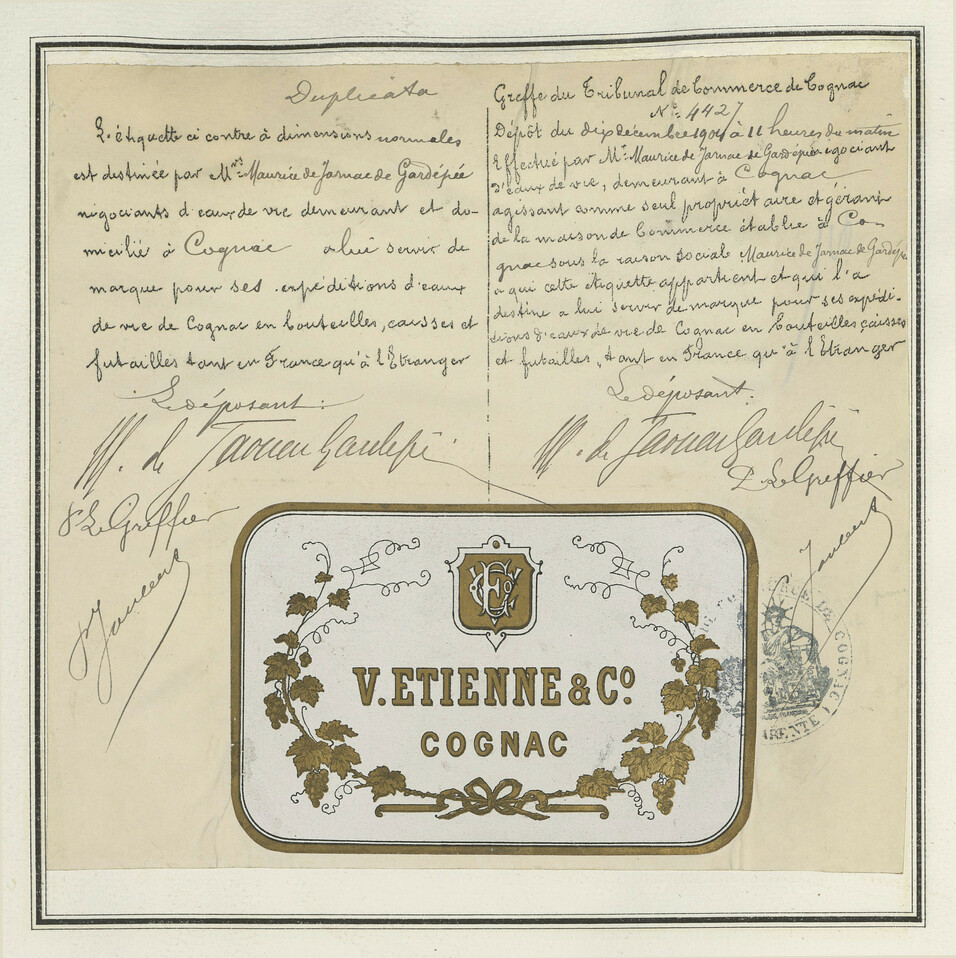 Duplicata
L'étiquette ci contre à dimensions normales
est destinée par Mrs Maurice de Jarnac de Gardépée
négociants d'eaux de vie demeurant et do-
micilié à Cognac a lui servir de
marque pour ses expéditions d'eaux
de vie de Cognac en bouteilles, caisses et
futailles tant en France qu'à l'Etranger
Le déposant:
M. de Jarnac Gardépée
Le Greffier
Greffe du Tribunal de Commerce de Cognac
No: 4427
Dépôt du dix décembre à 11 heures du matin
Effectué par Mr Maurice de Jarnac de Gardépée négociant
d'eaux de vie, demeurant à Cognac
agissant comme seul propriétaire et gérant
de la maison de Commerce établie à Co-
gnac sous la raison social Maurice de Jarnac de Gardépée
a qui cette étiquette appartient et qui l'a
destine a lui servir de marque pour ses expédi-
tions d'eaux de vie de Cognac en bouteilles caisses
et futailles, tant en France qu'à l'Etranger
Le déposant:
M. de Jarnac Gardépée
Le Greffier
V. ETIENNE & Co
COGNAC
DE COGNAC